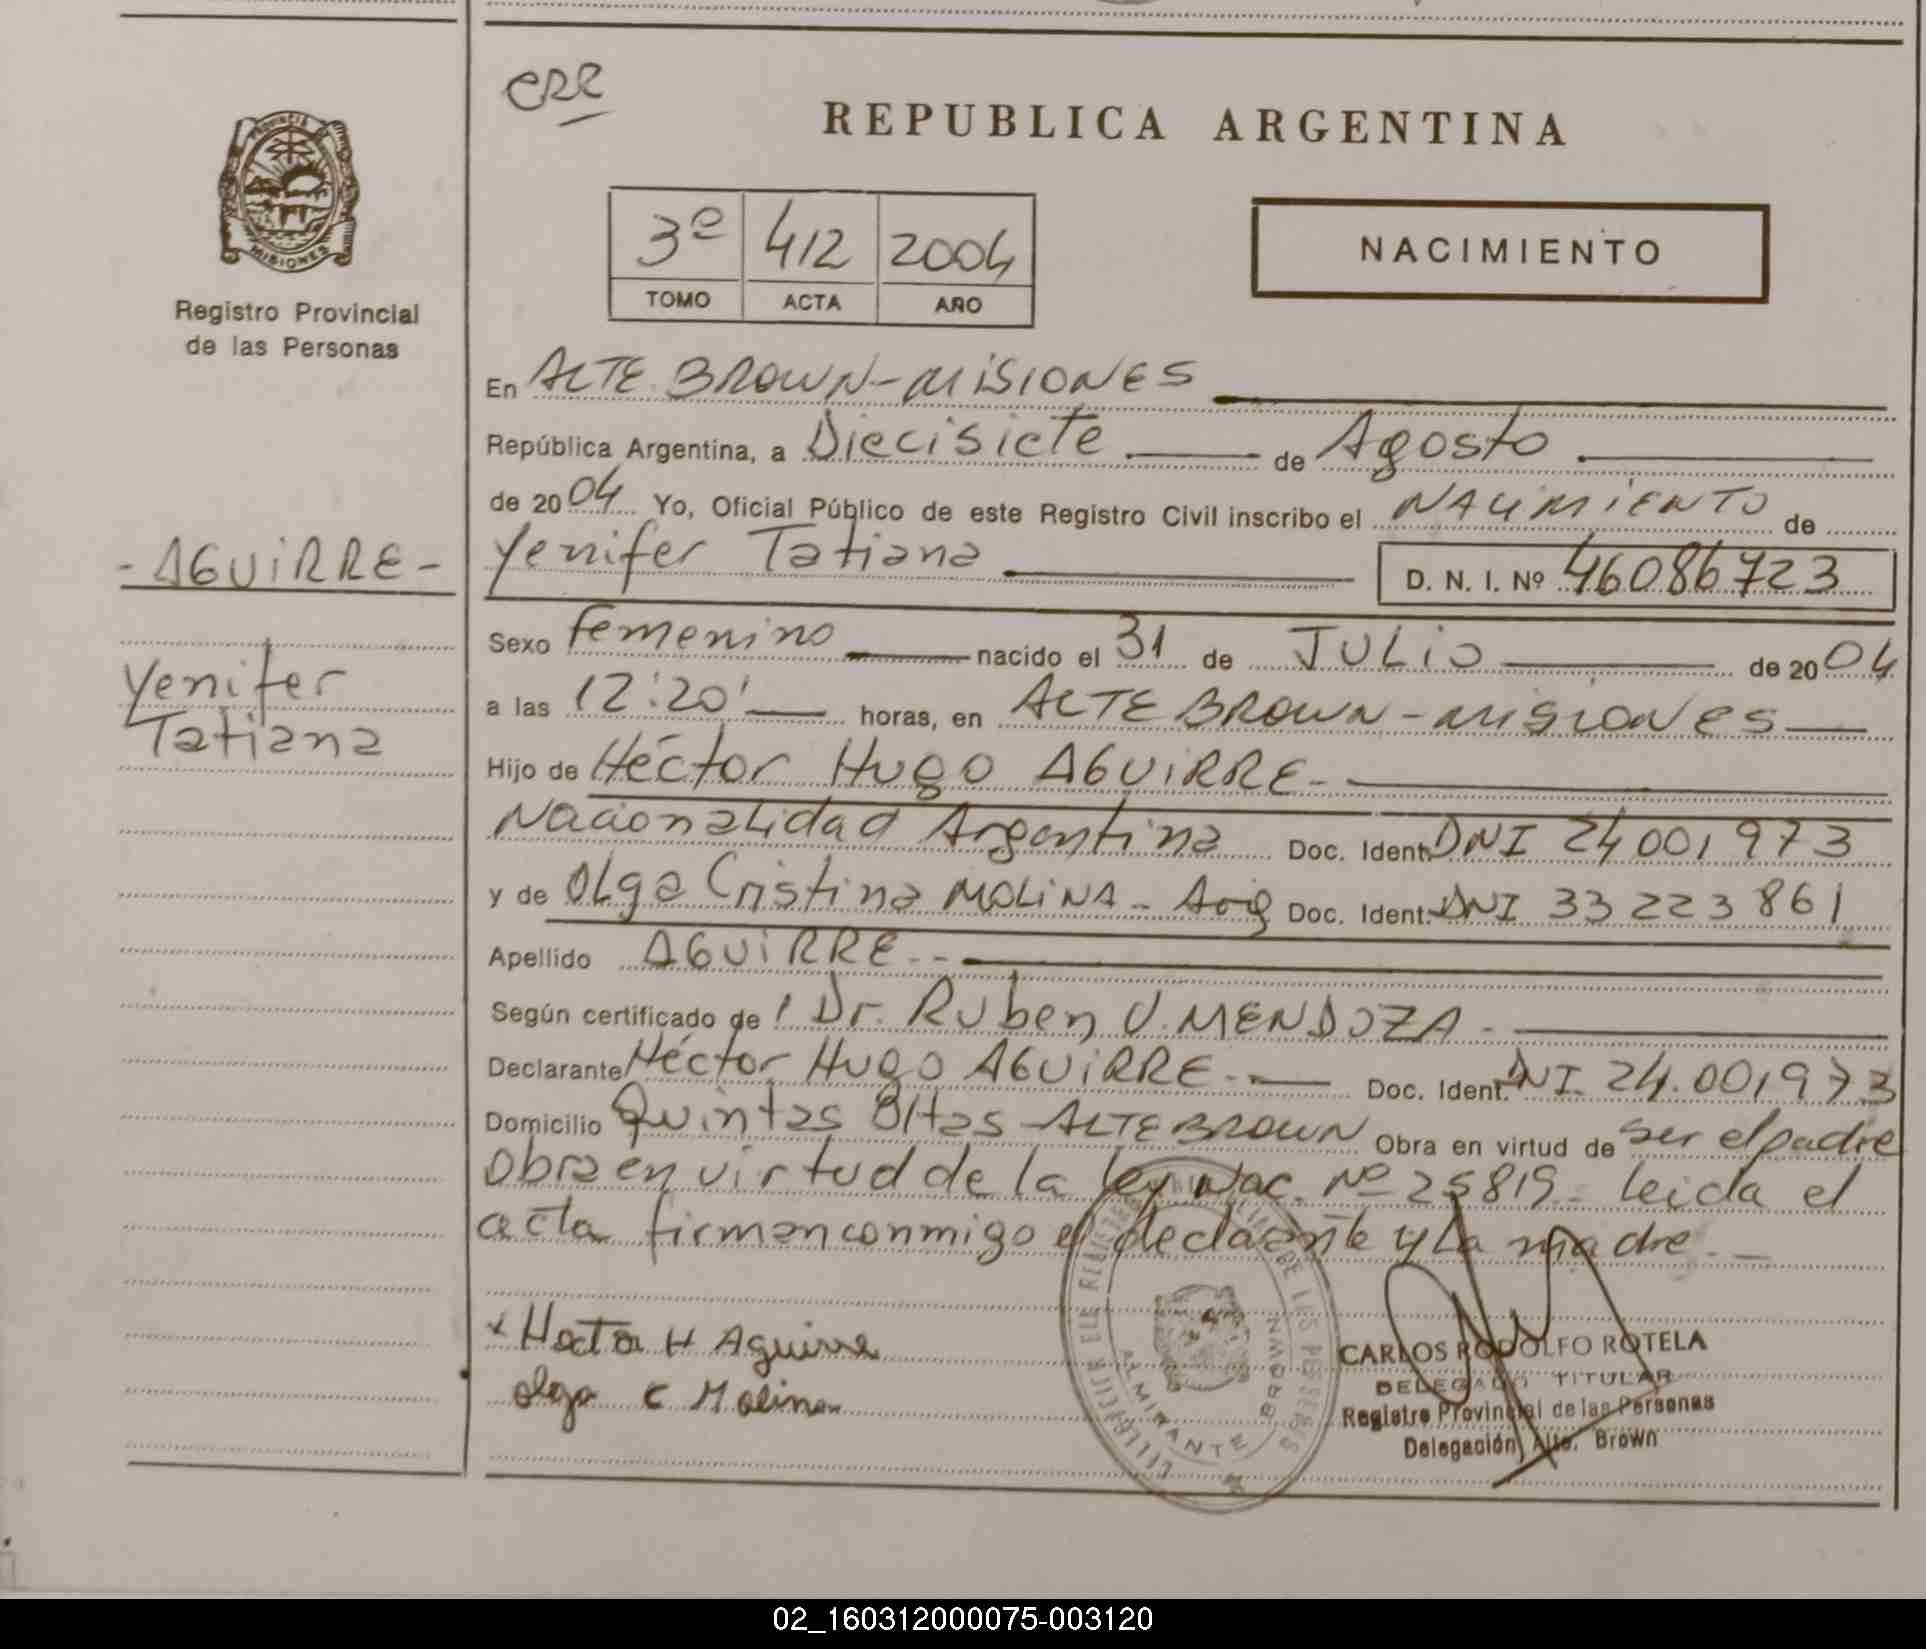 CRE
REPUBLICA ARGENTINA
PROVINCIA DE
MISIONES
Registro Provincial
de las Personas
3º 412 2004
TOMO ACTA AÑO
NACIMIENTO
En ALTE. BROWN-MISIONES
República Argentina, a Diecisiete de Agosto
de 2004 Yo, Oficial Público de este Registro Civil inscribo el NACIMIENTO de
- AGUIRRE -
Yenifer Tatiana D. N. I. Nº 46086723
Sexo femenino nacido el 31 de JULIO de 2004
Yenifer
Tatiana
a las 12:20' horas, en ALTE BROWN-MISIONES
Hijo de Héctor Hugo AGUIRRE-
Nacionalidad Argentina Doc. Ident. DNI 24001973
y de Olga Cristina MOLINA - Arg Doc. Ident. DNI 33 223 861
Apellido AGUIRRE--
Según certificado de Dr. Ruben V. MENDOZA-
Declarante Héctor Hugo AGUIRRE- Doc. Ident. DNI 24.001973
Domicilio Quintas 8 Htas - ALTE BROWN Obra en virtud de ser el padre
Obra en virtud de la ley Nac. Nº 25819 - leida el
acta firman conmigo el declarante y la madre.-
x Hector H Aguirre
Olga C Molina
ALMIRANTE BROWN
CARLOS RODOLFO ROTELA
DELEGADO TITULAR
Registro Provincial de las Personas
Delegación Alte. Brown
02_160312000075-003120